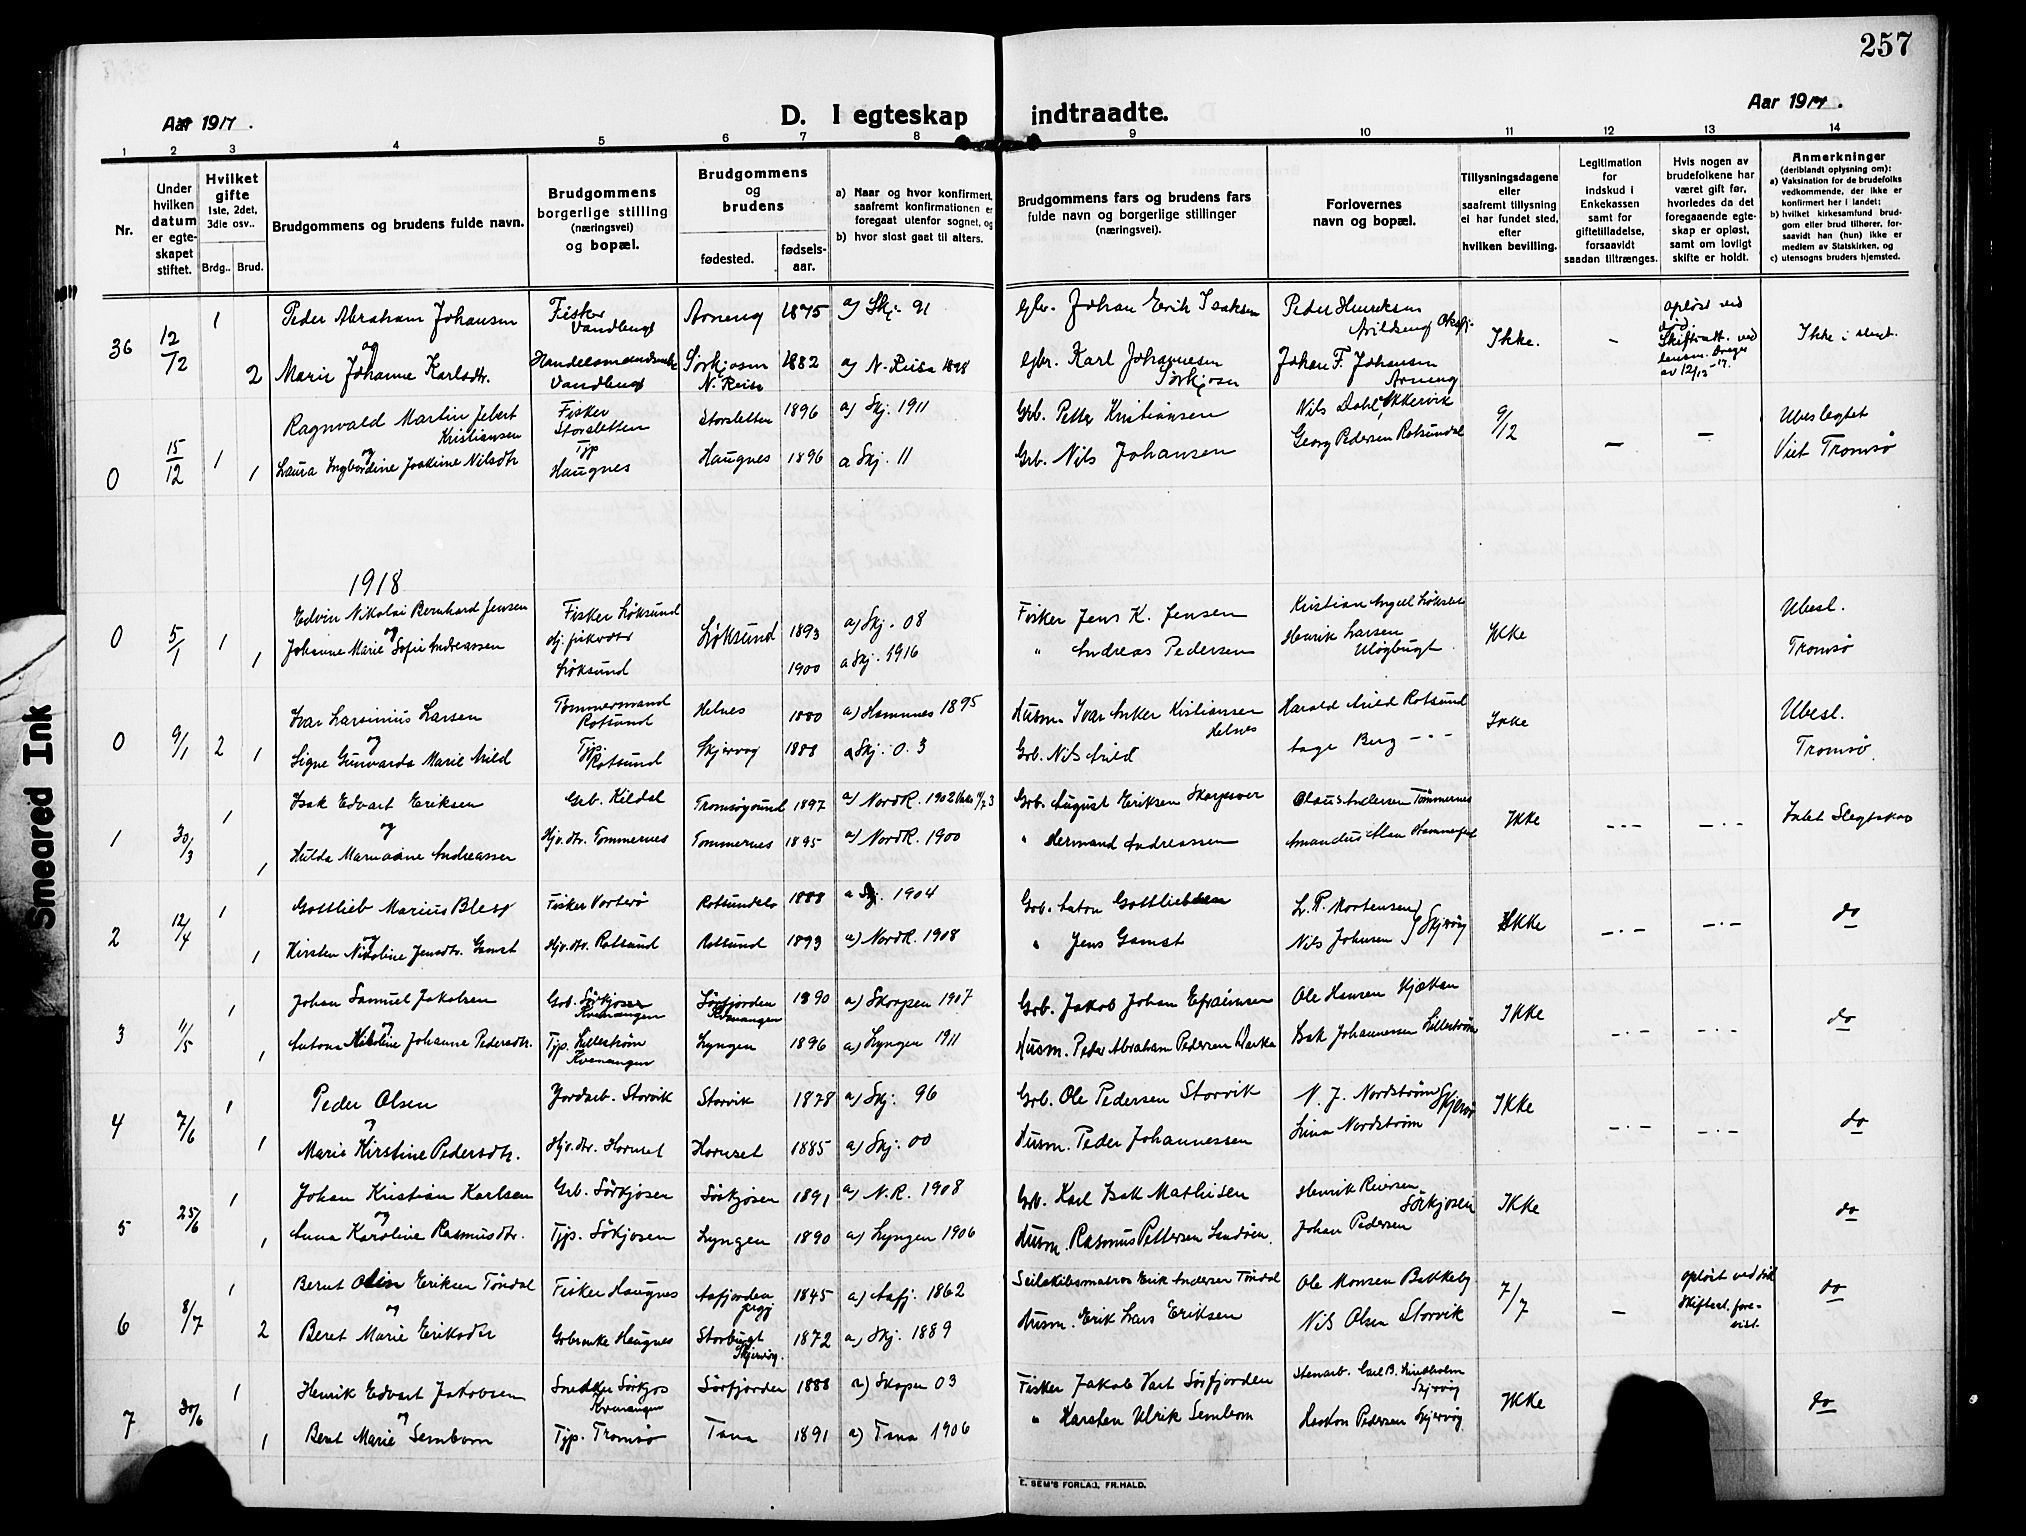 257
Aar 1917.
D. I egteskap indtraadte.
Aar 1917.
1 2 3 4 5 6 7 8 9 10 11 12 13 14
Nr.
Under hvilken datum er egte-skapet stiftet.
Hvilket gifte 1ste, 2det, 3die osv..
Brdg.. Brud.
Brudgommens og brudens fulde navn.
Brudgommens borgerlige stilling (næringsvei) og bopæl.
Brudgommens og brudens
fødested. fødsels-aar.
a) Naar og hvor konfirmert, saafremt konfirmationen er foregaat utenfor sognet, og
b) hvor sidst gaat til alters.
Brudgommens fars og brudens fars fulde navn og borgerlige stillinger (næringsvei).
Forlovernes navn og bopæl.
Tillysningsdagene eller saafremt tillysning ei har fundet sted, efter hvilken bevilling.
Legitimation for indskud i Enkekassen samt for giftetilladelse, forsaavidt saadan tiltrænges.
Hvis nogen av brudefolkene har været gift før, hvorledes da det foregaaende egte-skap er opløst, samt om lovligt skifte er holdt.
Anmerkninger (deriblandt oplysning om):
a) Vaksination for de brudefolks vedkommende, der ikke er konfirmert her i landet;
b) hvilket kirkesamfund brud-gom eller brud tilhører, for-saavidt han (hun) ikke er medlem av Statskirken, og
c) utensogns bruders hjemsted.
36 12/12 1 Peder Abraham Johansen Fisker Vandbugt Arneng 1875 a) Skj. 91 Gbr. Johan Erik Isaksen Peder Henriksen Arildseng Oksfj. Ikke. - opløst ved død Skifteatt. ved lensm. av 12/12-17. Ikke i slegt.
og
2 Marie Johanne Karlsdtr. Vandbugt Sørkjosen N. Reisa 1882 a) N. Reisa 1898 Gbr. Karl Johannesen Sørkjosen Johan F. Johansen Arneng
0 15/12 1 Ragnvald Martin Jebert Kristiansen Fisker Storsletten Storsletten 1896 a) Skj. 1911 Grb. Petter Kristiansen Nils Dahl, Akkervik 9/12 - - Ubeslegtet
og
1 Laura Ingbordine Joakime Nilsdtr Typ Haugnes Haugnes 1896 a Skj. 11 Grb. Nils Johansen Georg Pedersen Rotsundal Viet Tromsø
1918
0 5/1 1 Edvin Nikolai Bernhard Jensen Fisker Løksund Løksund 1893 a) Skj. 08 Fisker Jens K. Jensen Kristian Angell Ikke Ubesl.
og
1 Johanne Marie Sofie Andreassen Hj. fiskedtr Løksund 1900 a Skj. 1916 " Andreas Pedersen Henrik Larsen Uløgbugt Tromsø
0 9/1 2 Ivar Larsinius Larsen Tømmermand Rotsund Helnes 1880 a) Hamnes 1895 Husm. Ivar Anker Kistiansen Helnes Harald Arild Rotsund Ikke Ubesl.
og
1 Signe Gunvarda Marie Arild Typ. Rotsund Skjervøy 1888 a Skj. 0.3 Grb. Nils Arild Aage Berg -"- Tromsø.
1 30/3 1 Isak Edvart Eriksen Grb. Kildal Tromsøysund 1897 a) Nord R. 1902 Grb. August Eriksen Claus Andersen Tømmernes Ikke -.- -.- Intet Slegtskap
og
1 Hulda Andreassen Hjv.dtr. Tømmernes Tømmernes 1895 a) Nord R. 1900 " Hermand Andreassen Amandus Hammerfest
2 12/4 1 Gottlieb Marius Fisker Vorterø Rotsundelv 1888 a Skj. 1904 Grb. Anton Gottliebsen L. P. Mortensen Skjervøy Ikke -.- -.- do
og
1 Kirsten Nikoline Jensdtr. Gamst Hjv.dtr. Rotsund Rotsund 1893 a) Nord R. 1908 " Jens Gamst Nils Johnsen
3 11/5 1 Johan Samuel Jakobsen Grb. Sørkjosen Kvenangen Sørfjorden Kvenangen 1890 a) Skorpen 1907 Grb. Jakob Johan Efraimsen Ole Hansen Kjækan Ikke -.- -.- do
og
1 Antona Nikoline Johanne Pedersdtr. Typ. Lillestrøm Kvenangen Lyngen 1896 a) Lyngen 1911 Husm. Peder Abraham Pedersen Isak Johannessen Lillestrøm
4 7/6 1 Peder Olsen Jordarb. Storvik Storvik 1878 a) Skj. 96 Grb. Ole Pedersen Storvik N. J. Nordstrøm Skjervø Ikke -.- -.- do
og
1 Marie Kirstine Pedersdtr. Hjv.dtr. Hornset Hornset 1885 a) Skj. 00 Husm. Peder Johannessen Lina Nordstrøm
5 25/6 1 Johan Kristian Karlsen Grb. Sørkjosen Sørkjosen 1891 a) N.R. 1908 Grb. Karl Isak Mathisen Henrik Reiersen Sørkjosen Ikke do
og
1 Anna Karoline Rasmusdtr. Typ. Sørkjosen Lyngen 1890 a) Lyngen 1906 Husm. Rasmus Pettersen Johan Pedersen
6 8/7 1 Bernt Olin Eriksen Tøndal Fisker Haugnes Aafjorden 1845 a) Aafj. 1862 Seilskibsmatros Erik Andersen Tøndal Ole Monsen Bakkeby 7/7 - opløst ved død Skifteat. fore-vist. do
og
2 Beret Marie Eriksdtr Gbrenke Haugnes Storbugt Skjervøy. 1872 a) Skj. 1889 Husm. Erik Lars Eriksen Nils Olsen Storvik
7 30/6 1 Henrik Edvart Jakobsen Snedker Sørkjos Kvenangen Sørfjorden 1888 a) Skorpen 03 Fisker Jakob Sørfjorden Stenarb. Carl B. Lindholm Skjervøy Ikke do
og
1 Berit Marie Sembom Typ. Tromsø Tana 1891 a) Tana 1906 " Karsten Ulrik Sembom Pedersen Skjervøy
E. SEM'S FORLAG, FR.HALD.
Smeared Ink